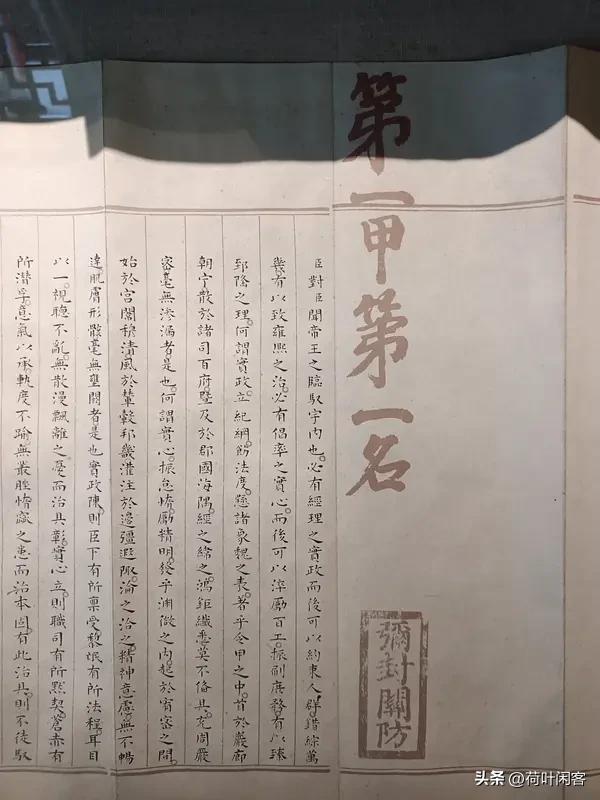 第一甲第一名
彌封關防
臣對臣聞帝王之臨馭宇內也必有經理之實政而後可以約束人群錯綜萬
幾有以致雍熙之治必有倡率之實心而後可以淬勵百工振刷庶務有以臻
郅隆之理何謂實政立紀綱飭法度懸諸象魏之表著乎令甲之中首於巖廊
朝宁散於諸司百府暨及於郡國海隅經之緯之鴻鉅纖悉莫不備具充周嚴
密毫無滲漏者是也何謂實心振怠惰勵精明發乎淵微之內起於宥密之間
始於宮闈穆清風於輦轂邦畿灌注於邊疆遐陬淪之洽之精神意慮無不暢
達肌膚形骸毫無壅閼者是也實政陳則臣下有所稟受黎氓有所法程耳目
以一視聽不亂無散漫飄離之憂而治具彰實心立則職司有所默契蒼赤有
所潛孚意氣以承軌度不踰無叢脞惰窳之患而治本固有此治具則不徒馭
头条 @荷叶闲客